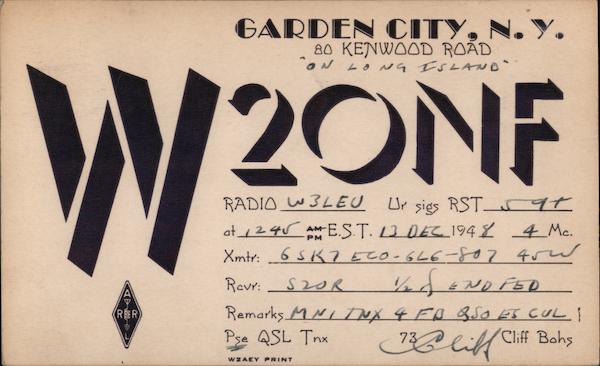 GARDEN CITY, N.Y.
80 KENWOOD ROAD
"ON LONG ISLAND"
W2ONF
RADIO W3LEU Ur sigs RST 59+
at 1245 AM PM E.S.T. 12 DEC 1948 4 Mc.
Xmtr: 6SK7 ECO-6L6-807 45W
Rcvr: S20R 1/2 λ END FED
Remarks MNI TNX 4 FB QSO ES CUL !
Pse QSL Tnx 73 Cliff Cliff Bohs
W2AEY PRINT
A
R R
L